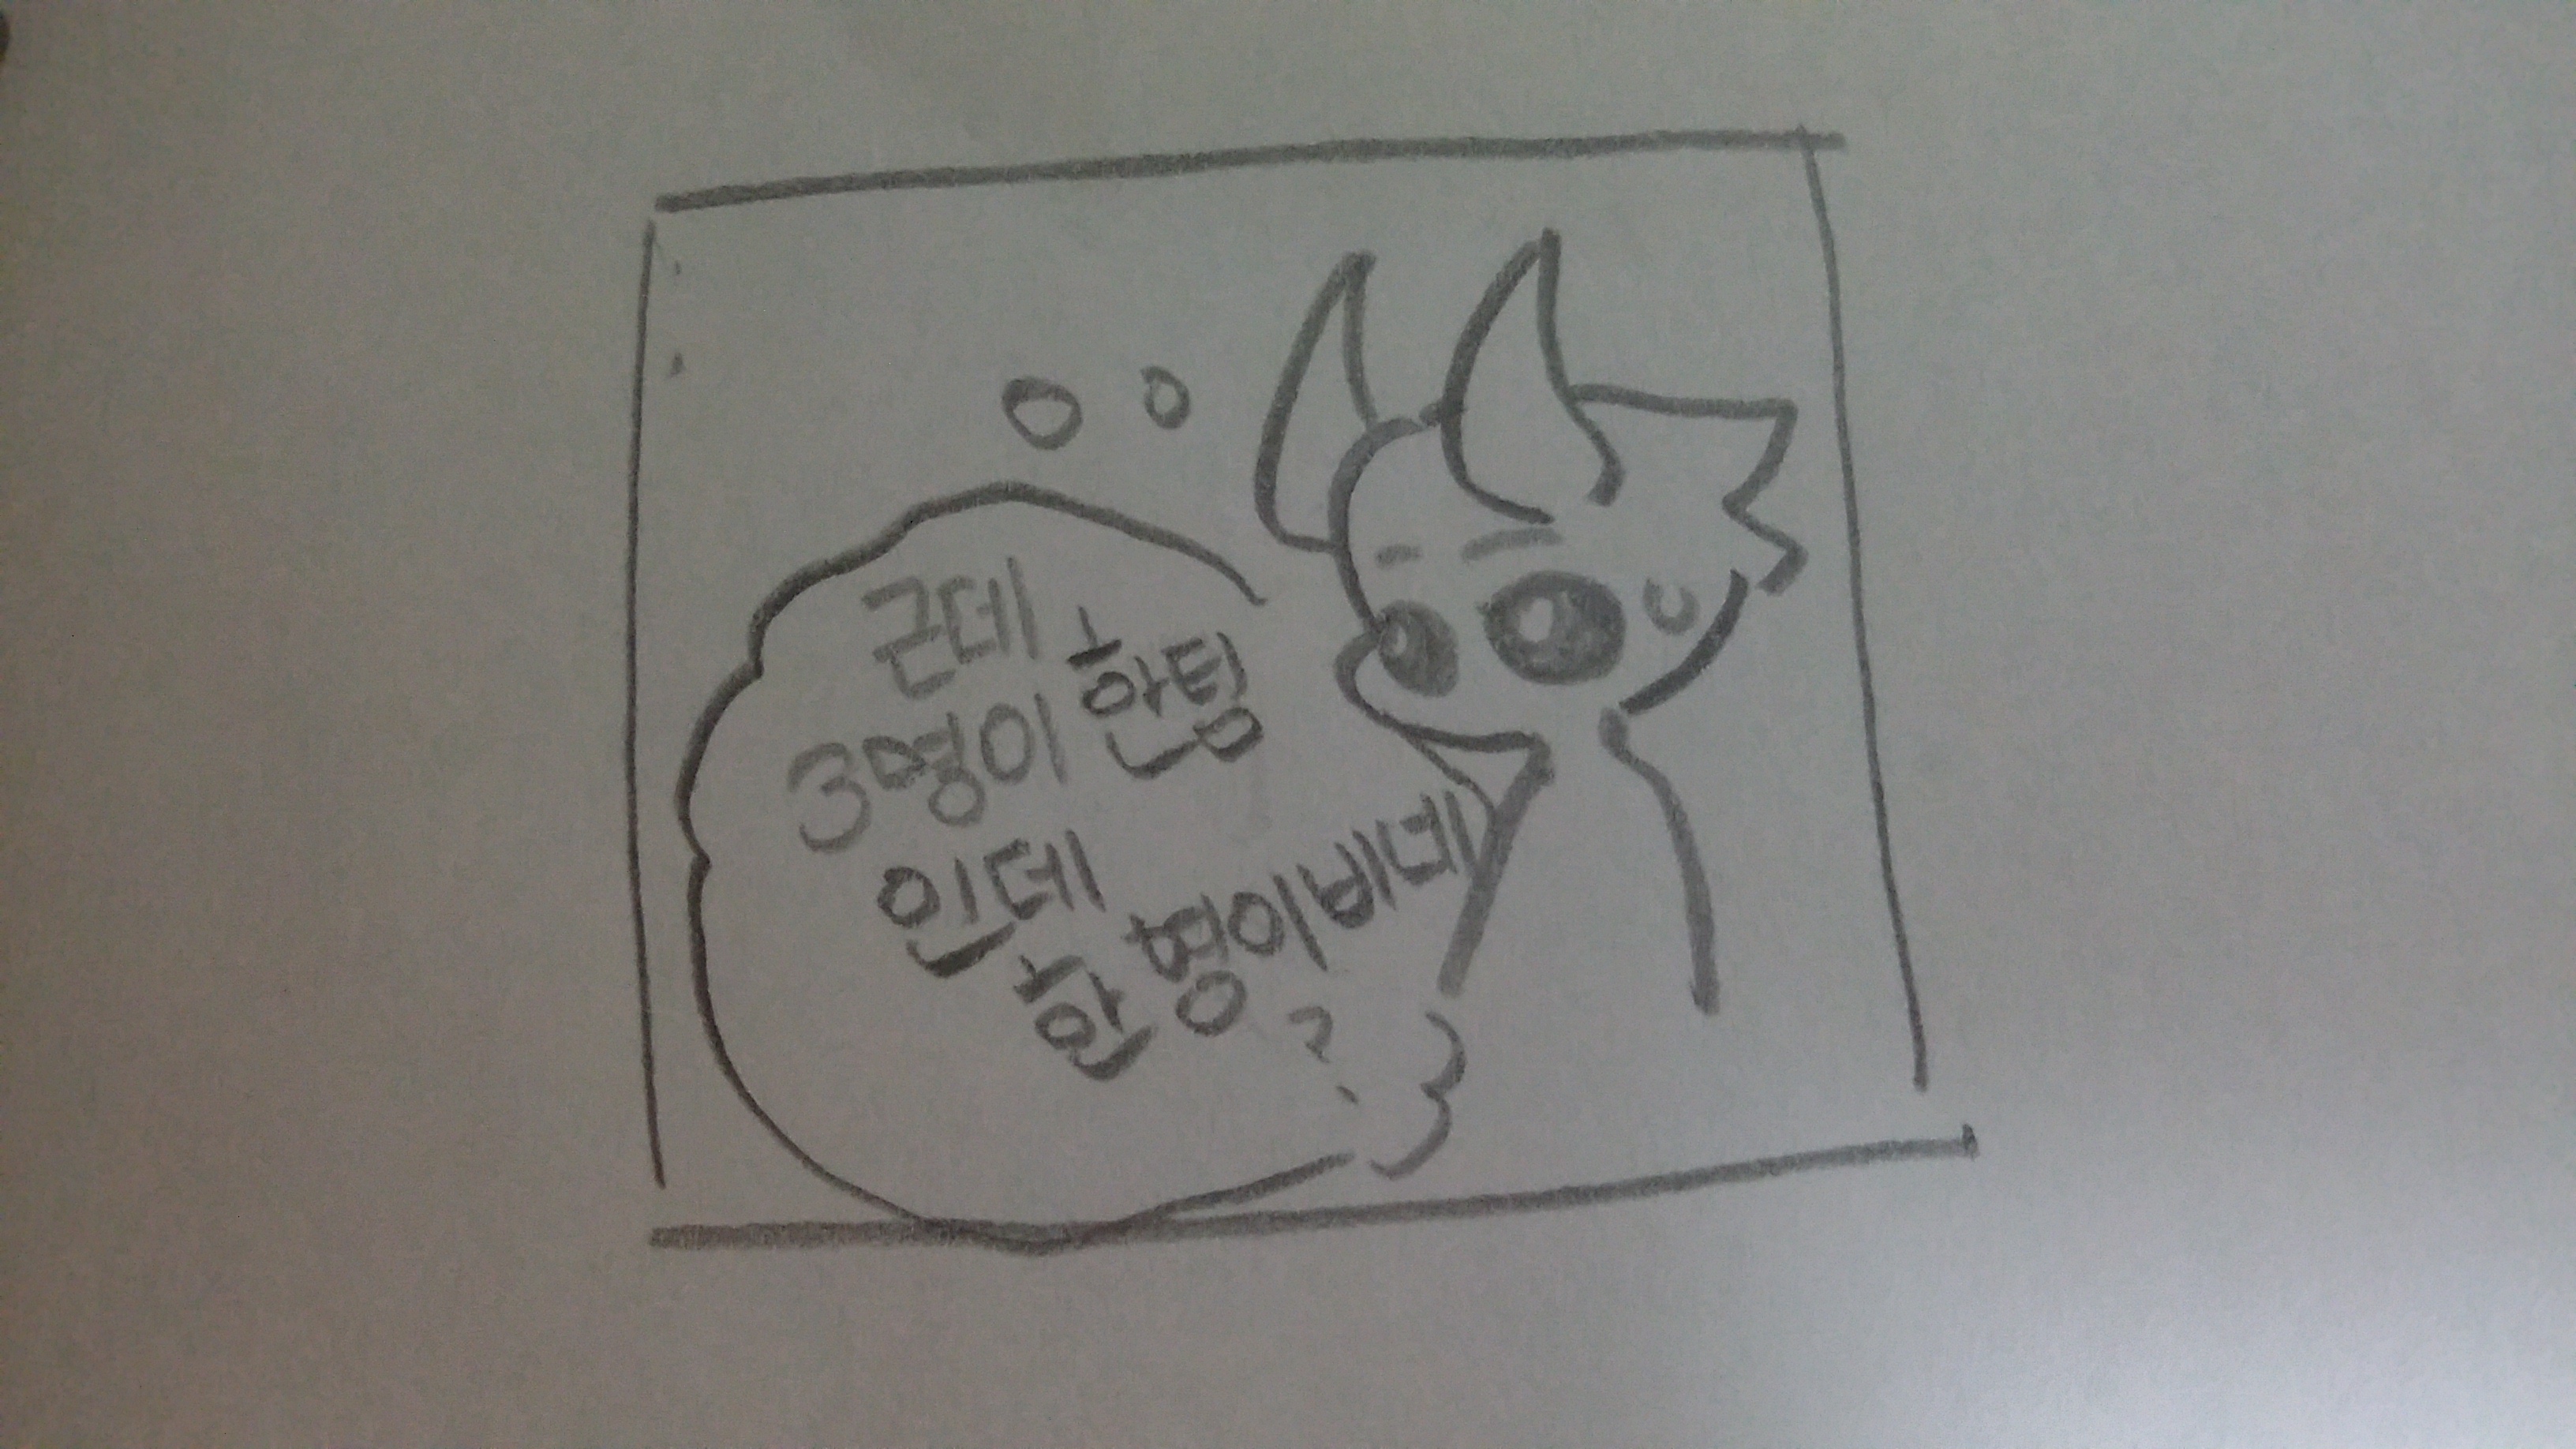 근데
3명이 한팀
인데
한 명이 비네
?